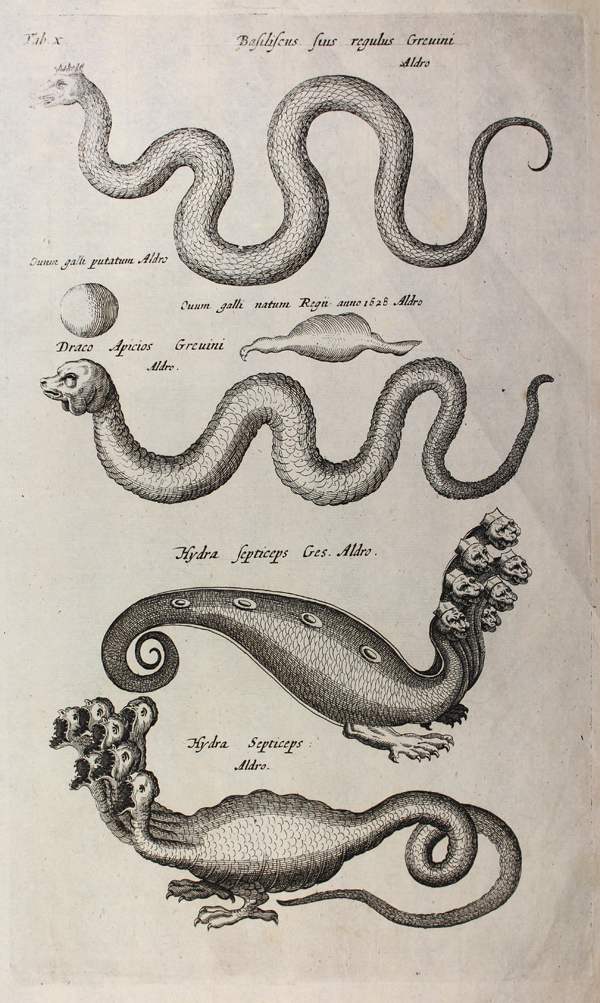 Tab x
Basiliscus sius regulus Greuini
Aldro
Ouum galli putatum Aldro
Ouum galli natum Regii anno 1628 Aldro
Draco Apicios Greuini
Aldro.
Hydra septiceps Ges. Aldro.
Hydra Septiceps:
Aldro.